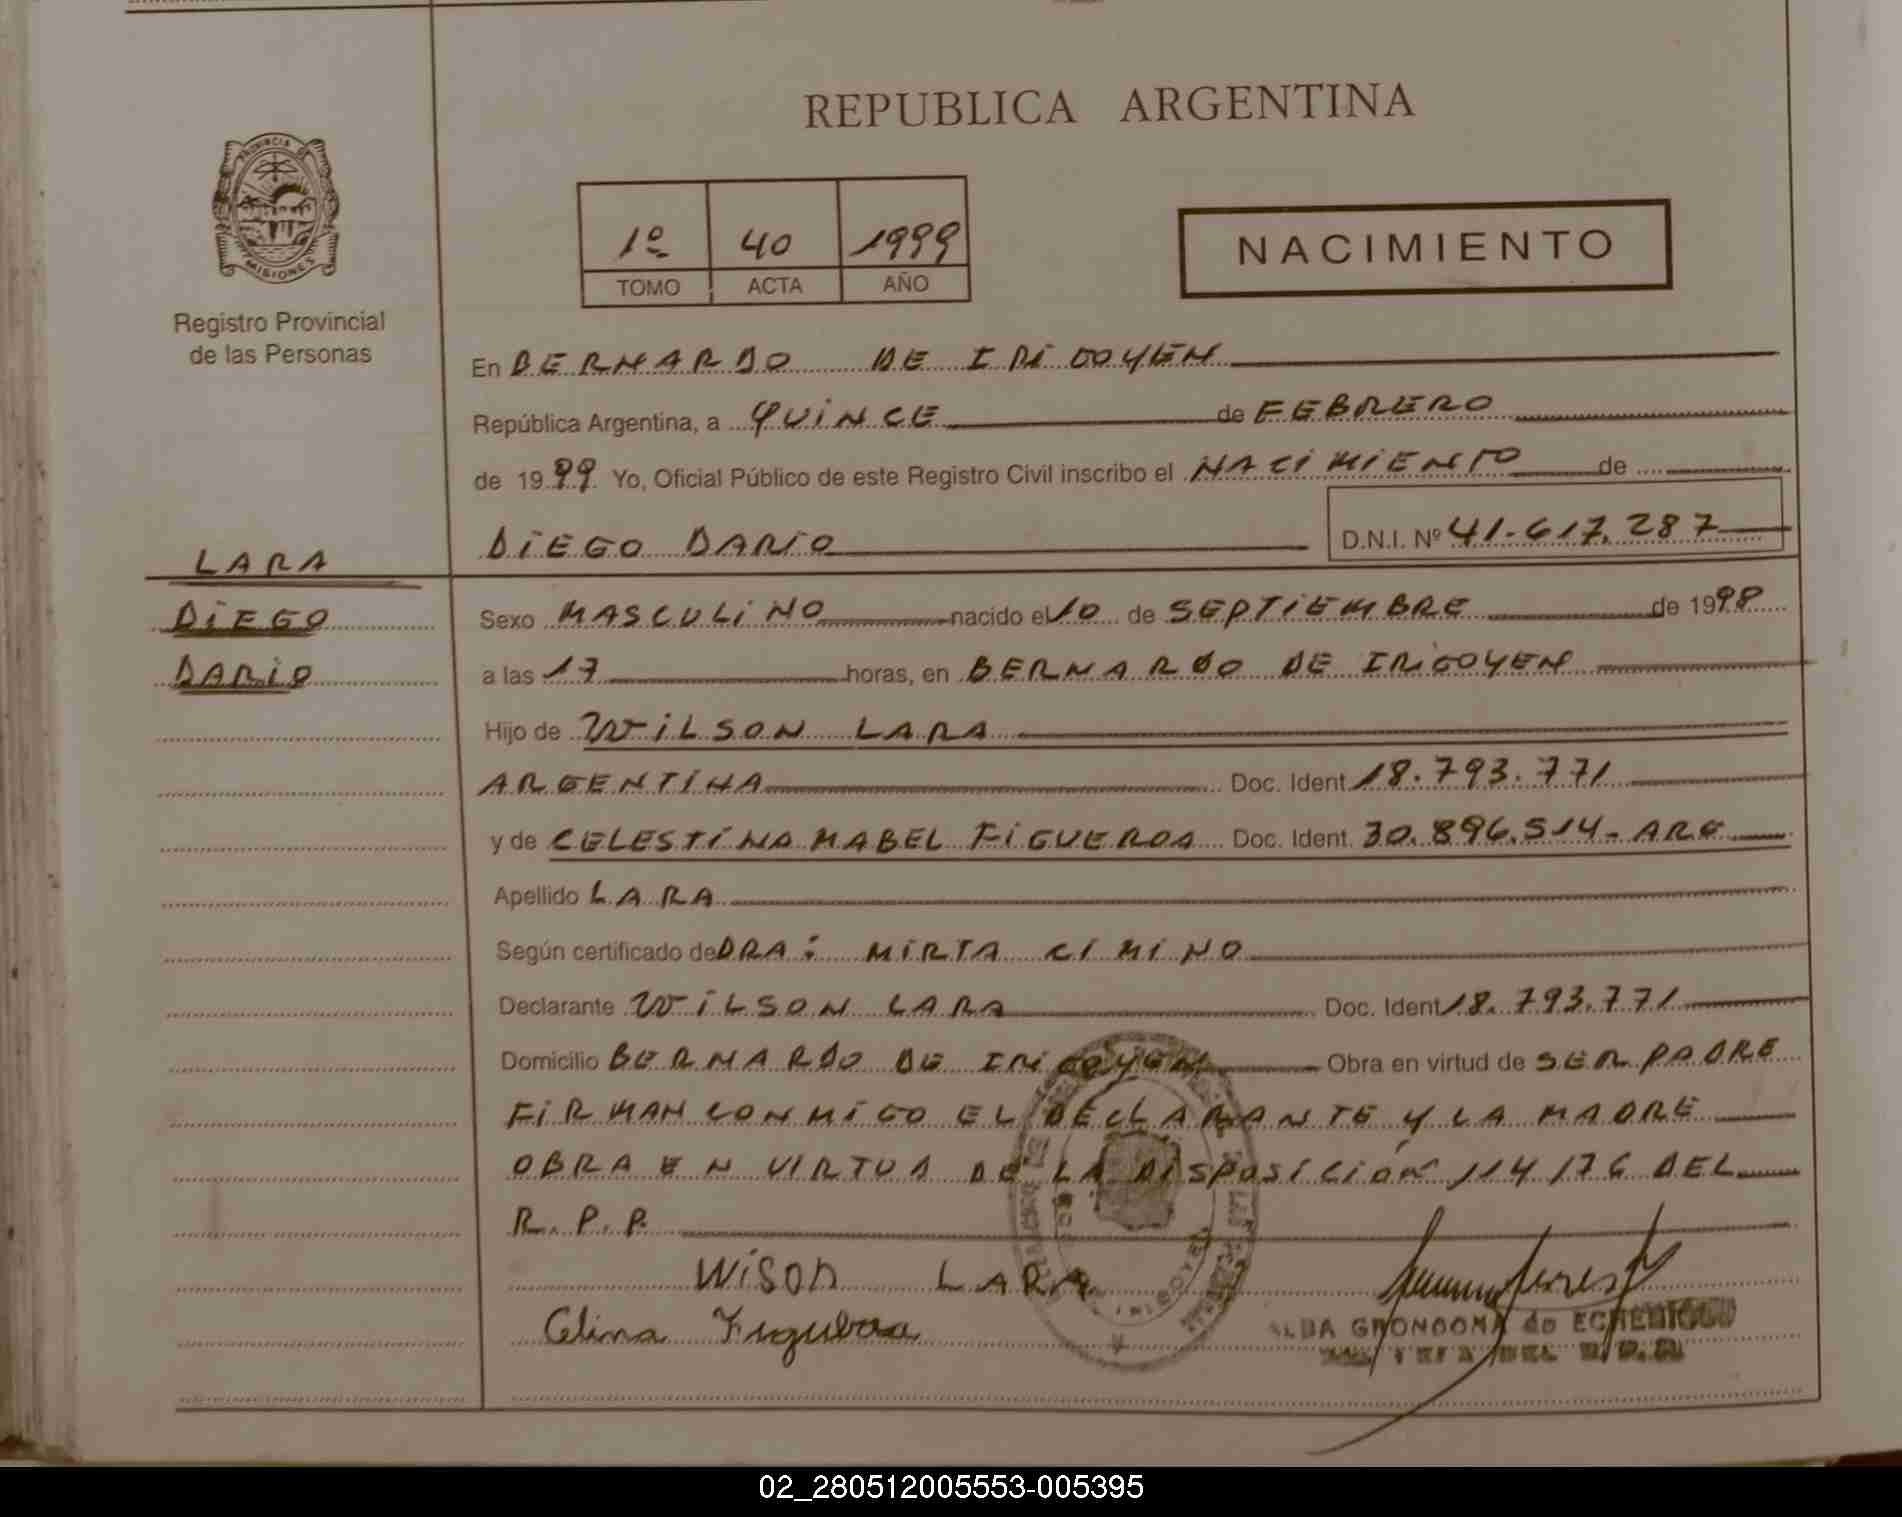 REPUBLICA ARGENTINA
PROVINCIA DE
MISIONES
Registro Provincial
de las Personas
1º 40 1999
TOMO ACTA AÑO
NACIMIENTO
En BERNARDO DE IRIGOYEN
República Argentina, a QUINCE de FEBRERO
de 1999 Yo, Oficial Público de este Registro Civil inscribo el NACIMIENTO de
DIEGO DARIO D.N.I. Nº 41.617.287
LARA
DIEGO
DARIO
Sexo MASCULINO nacido el 10 de SEPTIEMBRE de 1998
a las 17 horas, en BERNARDO DE IRIGOYEN
Hijo de WILSON LARA
ARGENTINA Doc. Ident 18.793.771
y de CELESTINA MABEL FIGUEROA Doc. Ident. 30.896.514- ARG
Apellido LARA
Según certificado de DRA: MIRTA CIMINO
Declarante WILSON LARA Doc. Ident 18.793.771
Domicilio BERNARDO DE IRIGOYEN Obra en virtud de SER PADRE
FIRMAN CONMIGO EL DECLARANTE Y LA MADRE
OBRA EN VIRTUD DE LA DISPOSICIÓN 114/76 DEL
R.P.P.
WISON LARA
Celina Figueroa
ALBA GRONDONA de
02_280512005553-005395